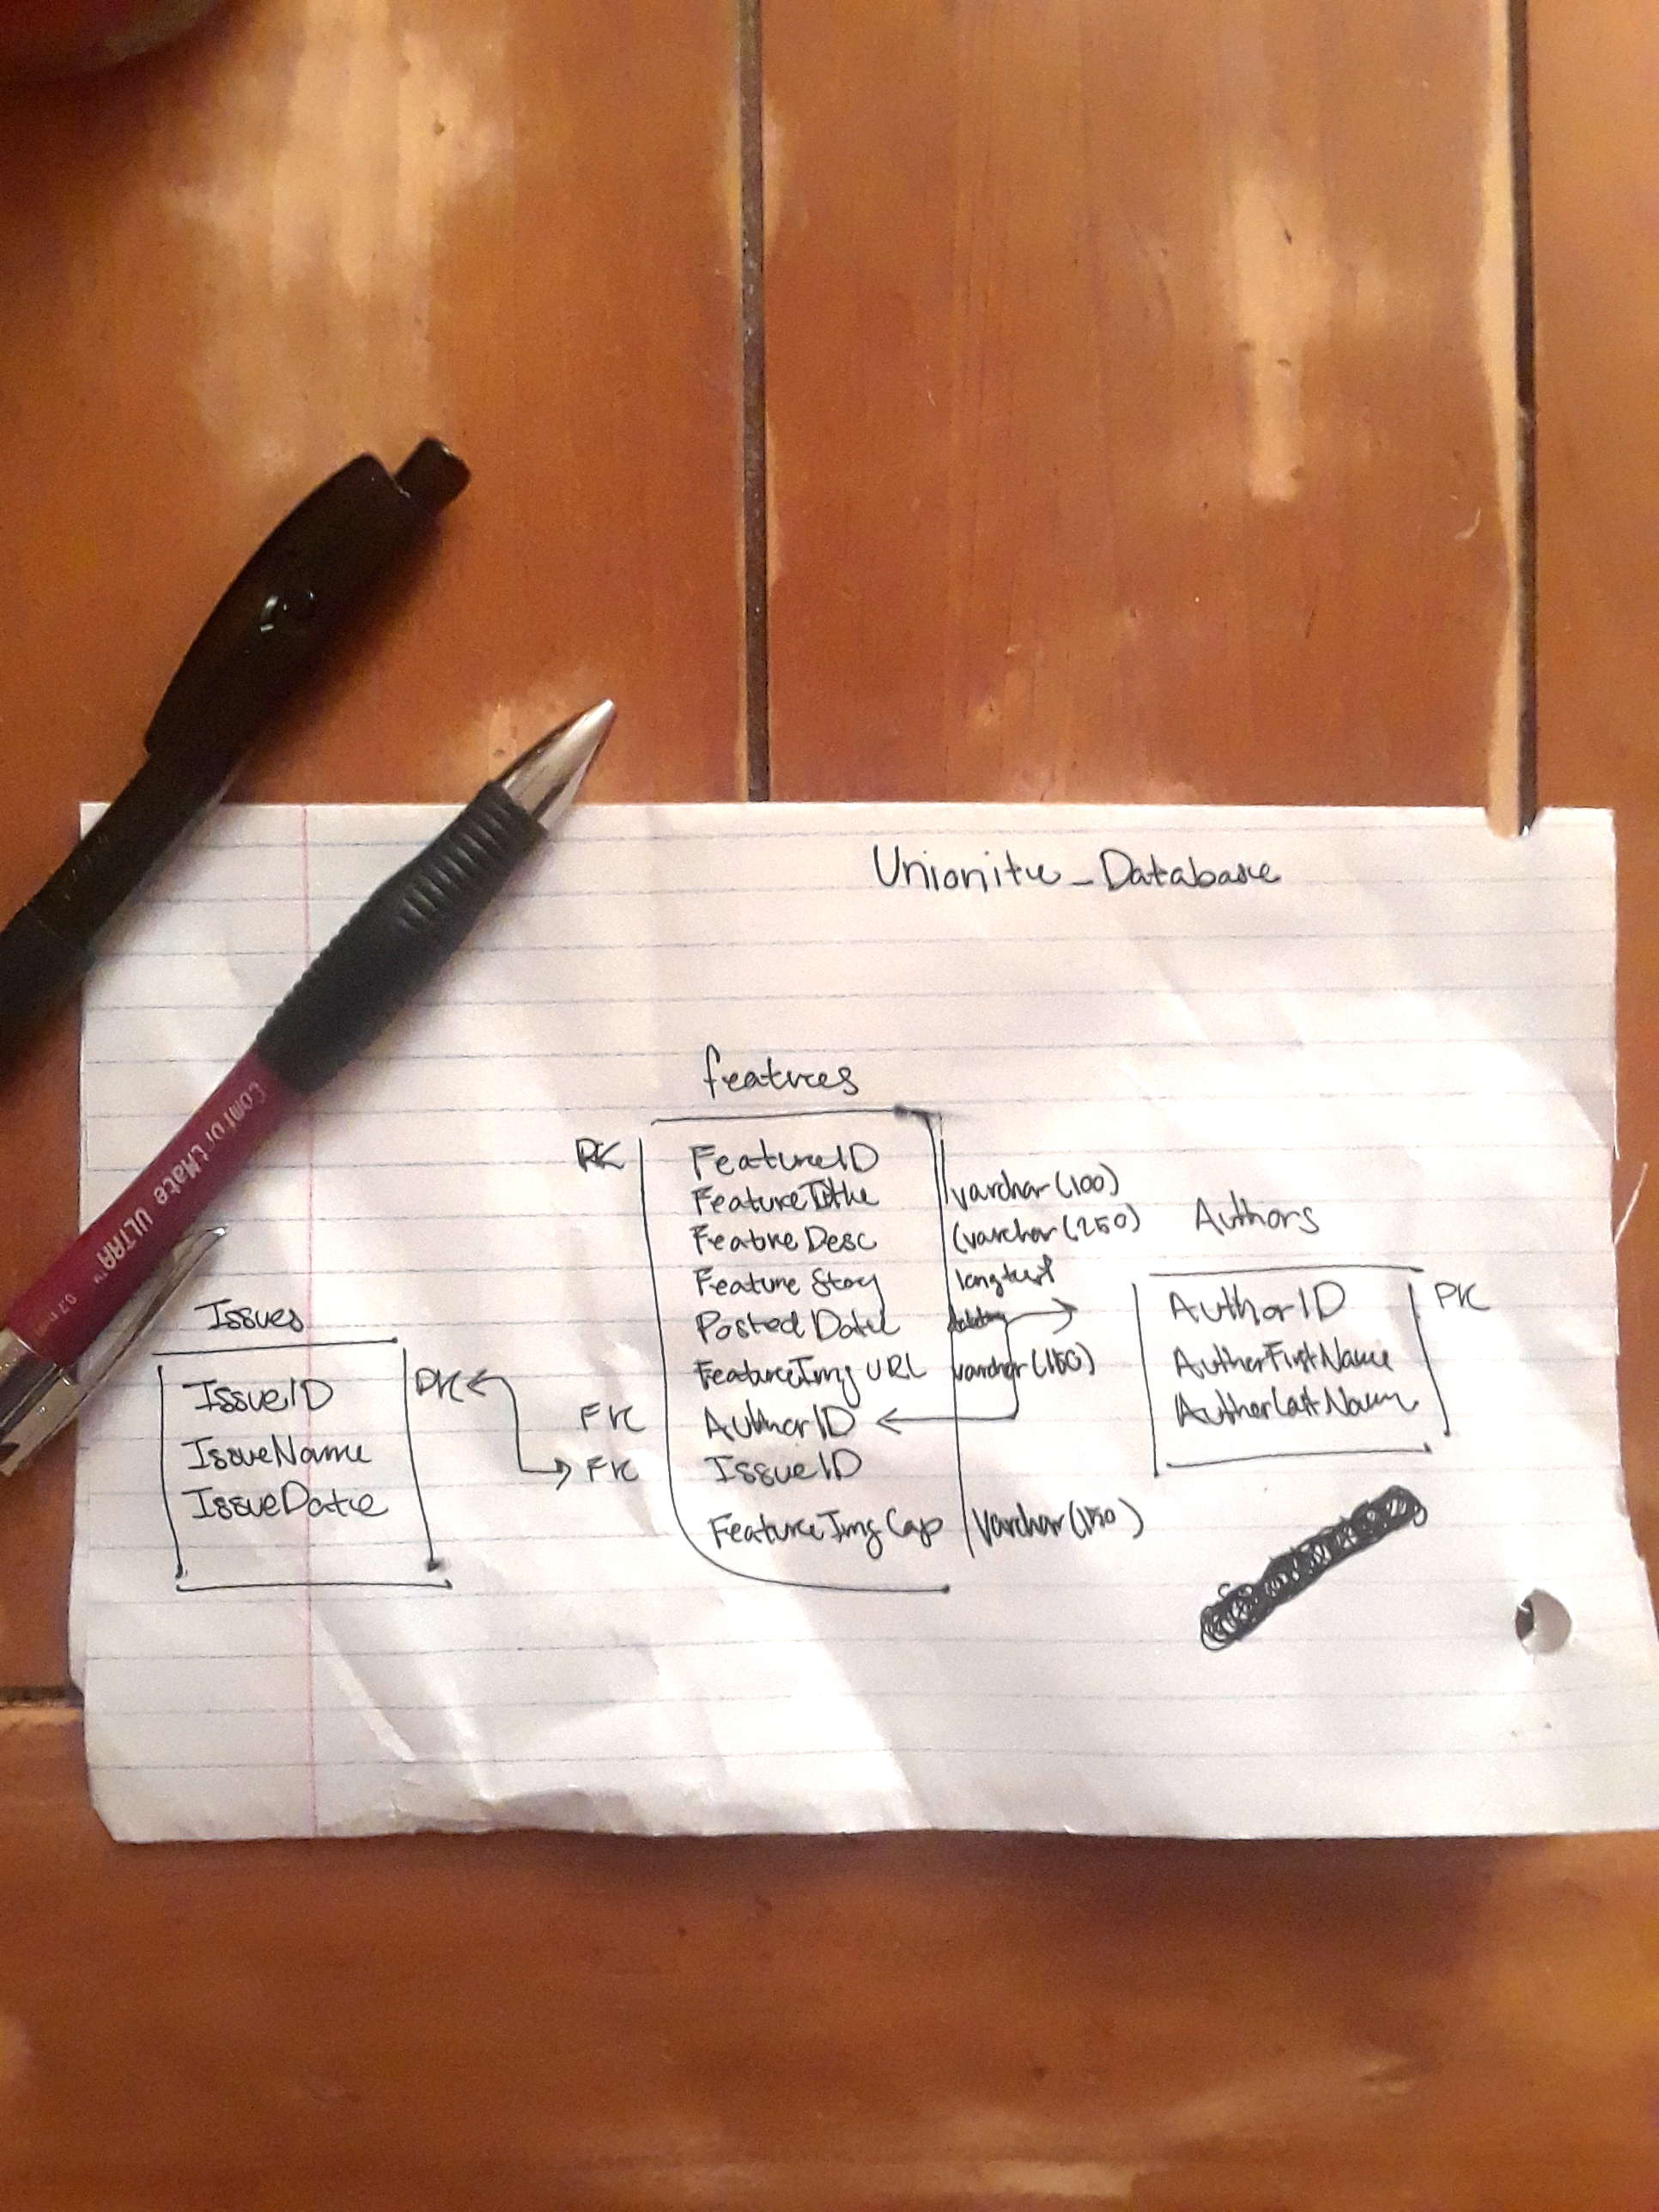 Unionite_Database
features
PK FeatureID
FeatureTitle varchar(100)
FeatureDesc (varchar(250)
Feature Story longtext
Posted Date
FeatureImg URL varchar(150)
FK AuthorID
FK IssueID
FeatureImgCap varchar(150)
Authors
AuthorID PK
AutherFirstName
AutherLastName
Issues
IssueID PK
IssueName
IssueDate
ComfortMate ULTRA™ 0.7